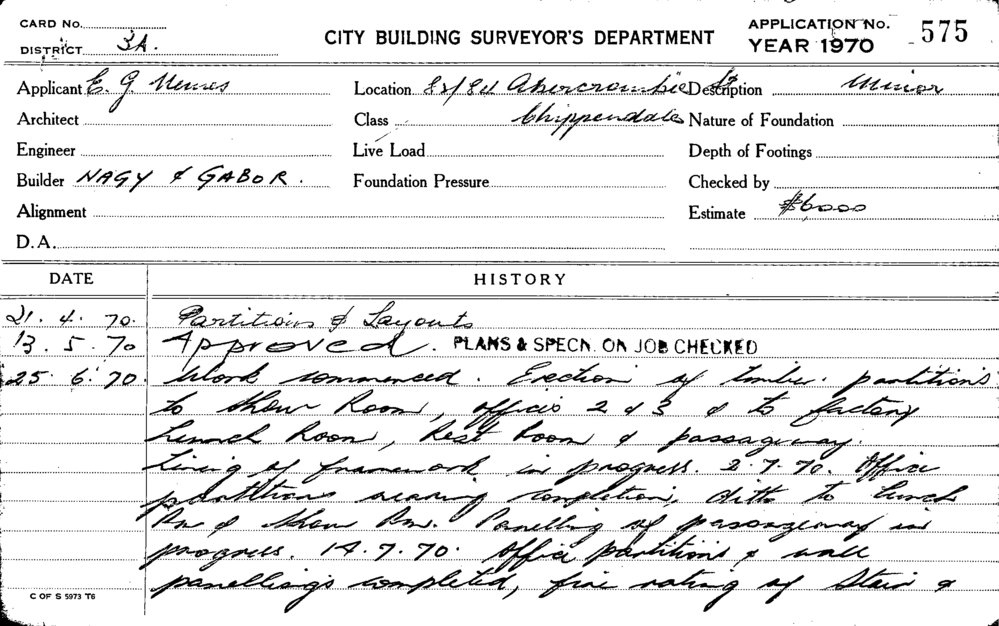 CARD NO.
DISTRICT 3A.
CITY BUILDING SURVEYOR'S DEPARTMENT
APPLICATION NO. 575
YEAR 1970
Applicant E. G. Nemes
Location 82/84 Abercrombie St
Description Minor
Architect
Class Chippendale
Nature of Foundation
Engineer
Live Load
Depth of Footings
Builder NAGY & GABOR.
Foundation Pressure
Checked by
Alignment
Estimate $6000
D.A.
DATE HISTORY
21. 4. 70. Partitions & Layouts
13. 5. 70 Approved. PLANS & SPECN. ON JOB CHECKED
25. 6. 70. Work commenced. Erection of timber partitions
to Show Room, offices 2 & 3 & to factory
Lunch Room, Rest Room & passageway.
Lining of framework in progress. 2.7.70. Office
partitions nearing completion, ditto to Lunch
Rm & Show Rm. Panelling of passageway in
progress. 14.7.70. Office partitions & wall
panellings completed, fire rating of Stair &
C OF S 5973 T6